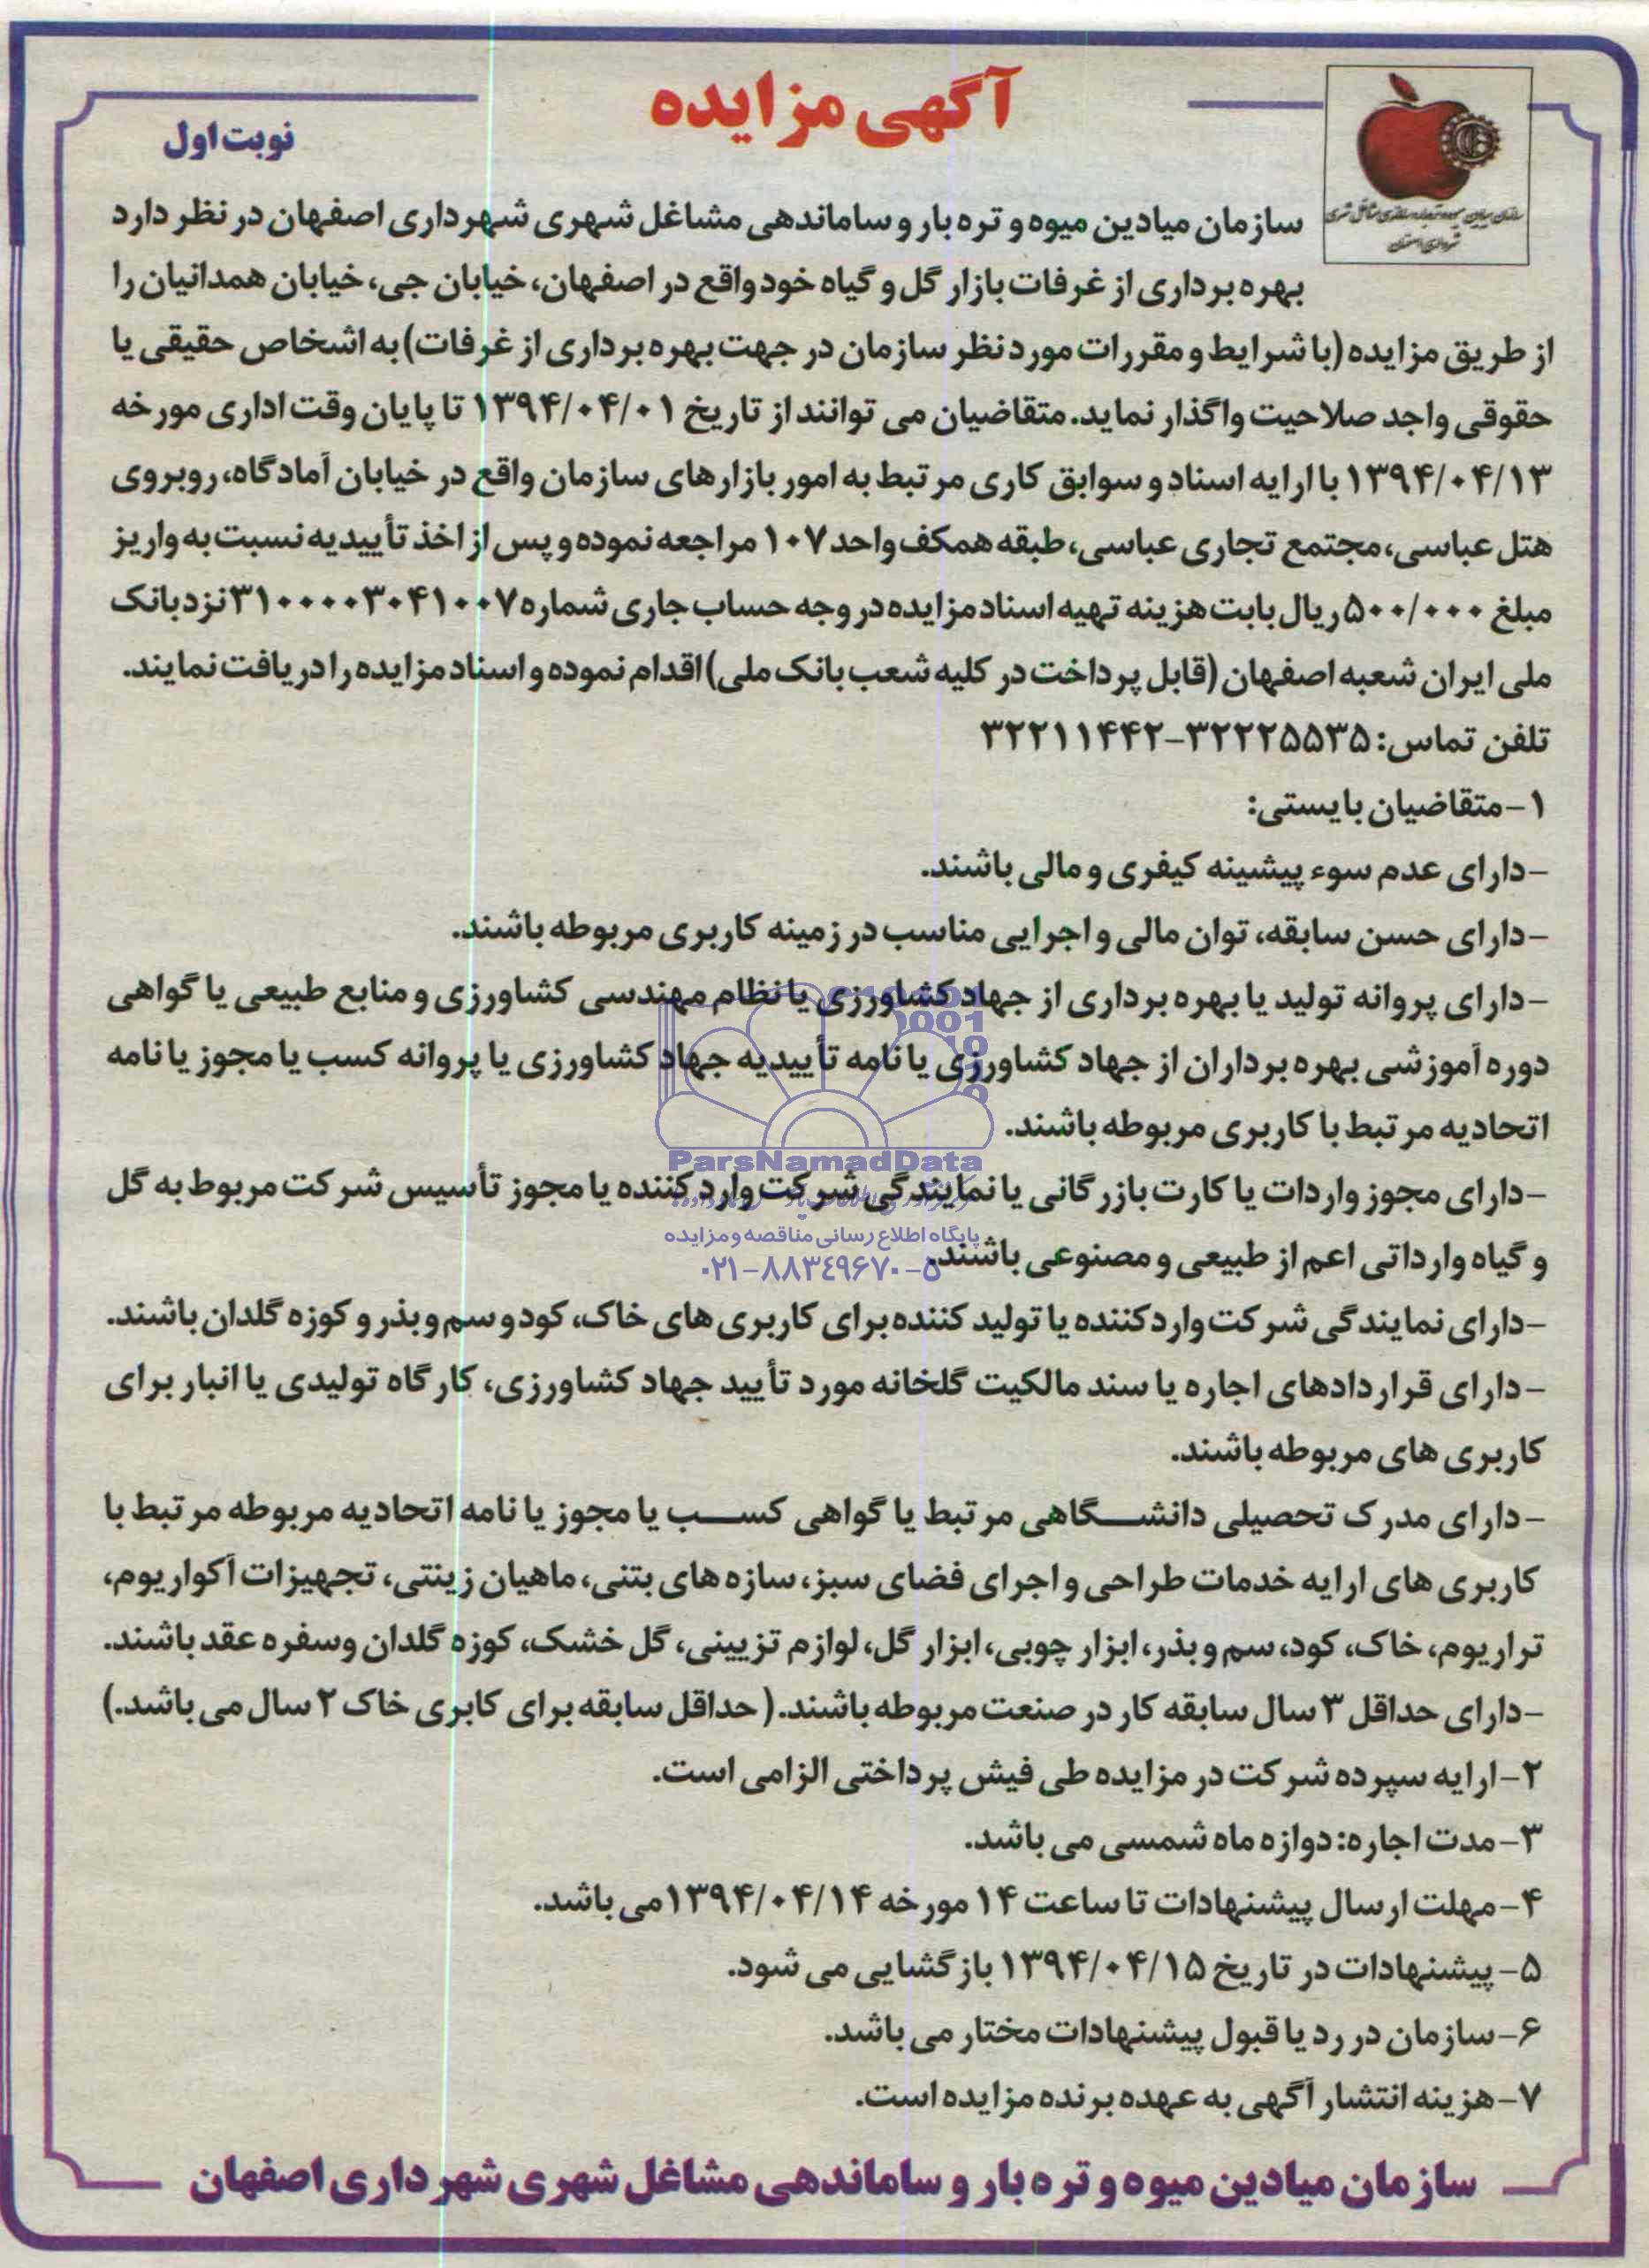 آگهی مزایده
نوبت اول
سازمان میادین میوه و تره بار و ساماندهی مشاغل شهری شهرداری اصفهان در نظر دارد
بهره برداری از غرفات بازار گل و گیاه خود واقع در اصفهان، خیابان جی، خیابان همدانیان را
از طریق مزایده (با شرایط و مقررات مورد نظر سازمان در جهت بهره برداری از غرفات) به اشخاص حقیقی یا
حقوقی واجد صلاحیت واگذار نماید. متقاضیان می توانند از تاریخ ۱۳۹۴/۰۴/۰۱ تا پایان وقت اداری مورخه
۱۳۹۴/۰۴/۱۳ با ارایه اسناد و سوابق کاری مرتبط به امور بازارهای سازمان واقع در خیابان آمادگاه، روبروی
هتل عباسی، مجتمع تجاری عباسی، طبقه همکف واحد ۱۰۷ مراجعه نموده و پس از اخذ تأییدیه نسبت به واریز
مبلغ ۵۰۰/۰۰۰ ریال بابت هزینه تهیه اسناد مزایده در وجه حساب جاری شماره ۳۱۰۰۰۰۳۰۴۱۰۰۷ نزد بانک
ملی ایران شعبه اصفهان (قابل پرداخت در کلیه شعب بانک ملی) اقدام نموده و اسناد مزایده را دریافت نمایند.
تلفن تماس: ۳۲۲۲۵۵۳۵-۳۲۲۱۱۴۴۲
۱- متقاضیان بایستی:
- دارای عدم سوء پیشینه کیفری و مالی باشند.
- دارای حسن سابقه، توان مالی و اجرایی مناسب در زمینه کاربری مربوطه باشند.
- دارای پروانه تولید یا بهره برداری از جهاد کشاورزی یا نظام مهندسی کشاورزی و منابع طبیعی یا گواهی
دوره آموزشی بهره برداران از جهاد کشاورزی یا نامه تأییدیه جهاد کشاورزی یا پروانه کسب یا مجوز یا نامه
اتحادیه مرتبط با کاربری مربوطه باشند.
ParsNamadData
- دارای مجوز واردات یا کارت بازرگانی یا نمایندگی شرکت وارد کننده یا مجوز تأسیس شرکت مربوط به گل
پایگاه اطلاع رسانی مناقصه و مزایده
و گیاه وارداتی اعم از طبیعی و مصنوعی باشند.
۰۲۱-۸۸۳۴۹۶۷۰-۵
- دارای نمایندگی شرکت وارد کننده یا تولید کننده برای کاربری های خاک، کود و سم و بذر و کوزه گلدان باشند.
- دارای قراردادهای اجاره یا سند مالکیت گلخانه مورد تأیید جهاد کشاورزی، کارگاه تولیدی یا انبار برای
کاربری های مربوطه باشند.
- دارای مدرک تحصیلی دانشگاهی مرتبط یا گواهی کسب یا مجوز یا نامه اتحادیه مربوطه مرتبط با
کاربری های ارایه خدمات طراحی و اجرای فضای سبز، سازه های بتنی، ماهیان زینتی، تجهیزات آکواریوم،
تراریوم، خاک، کود، سم و بذر، ابزار چوبی، ابزار گل، لوازم تزیینی، گل خشک، کوزه گلدان و سفره عقد باشند.
- دارای حداقل ۳ سال سابقه کار در صنعت مربوطه باشند. ( حداقل سابقه برای کابری خاک ۲ سال می باشد.)
۲- ارایه سپرده شرکت در مزایده طی فیش پرداختی الزامی است.
۳- مدت اجاره: دوازه ماه شمسی می باشد.
۴- مهلت ارسال پیشنهادات تا ساعت ۱۴ مورخه ۱۳۹۴/۰۴/۱۴ می باشد.
۵- پیشنهادات در تاریخ ۱۳۹۴/۰۴/۱۵ بازگشایی می شود.
۶- سازمان در رد یا قبول پیشنهادات مختار می باشد.
۷- هزینه انتشار آگهی به عهده برنده مزایده است.
سازمان میادین میوه و تره بار و ساماندهی مشاغل شهری شهرداری اصفهان